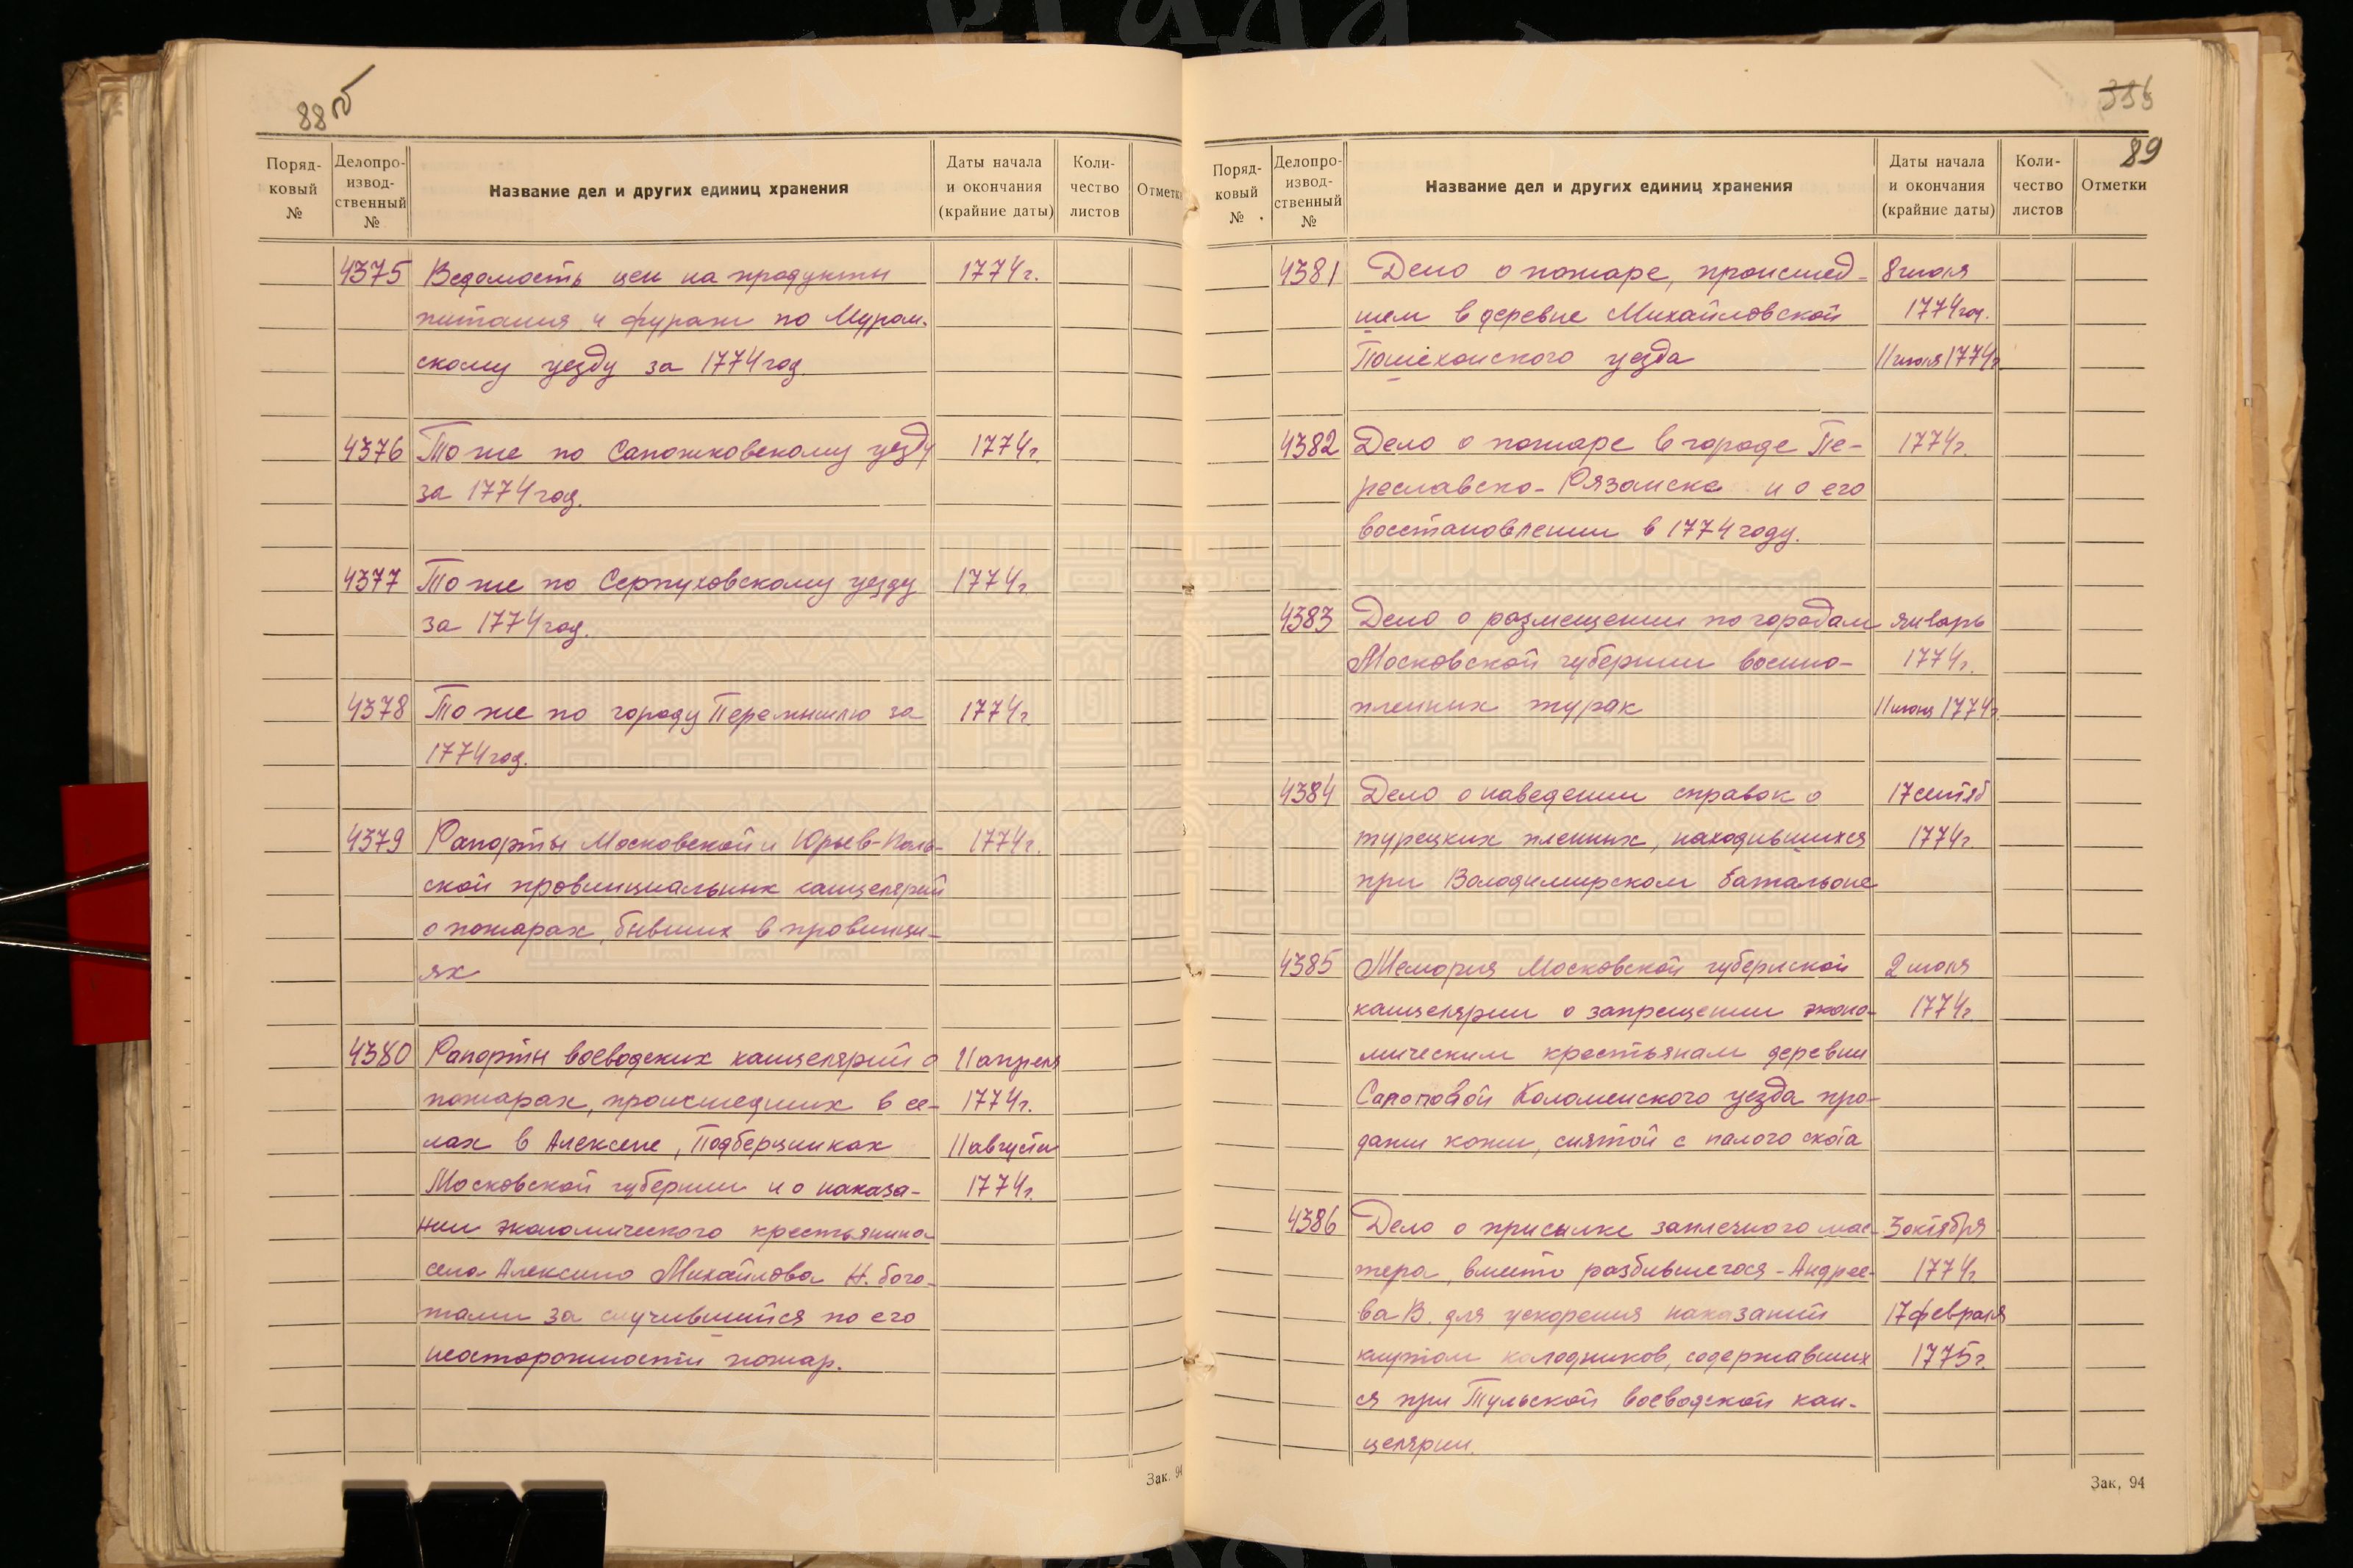 88 об
Поряд-
ковый
№
Делопро-
извод-
ственный
№
Название дел и других единиц хранения
Даты начала
и окончания
(крайние даты)
Коли-
чество
листов
Отметки
4375 Ведомость цен на продукты 1774г.
питания и фураж по Муром-
скому уезду за 1774 год
4376 То же по Сапожковскому уезду 1774г.
за 1774 год.
4377 То же по Серпуховскому уезду 1774г.
за 1774 год.
4378 То же по городу Перемышлю за 1774г
1774 год.
4379 Рапорты Московской и Юрьев-Поль- 1774г.
ской провинциальных канцелярий
о пожарах, бывших в провинци-
ях
4380 Рапорты воеводских канцелярий о 11 апреля
пожарах, происшедших в се- 1774г.
лах в Алексене, Подберцинках 11 августа
Московской губернии и о наказа- 1774г.
нии экономического крестьянина
села Алексино Михайлова Н. бото-
тами за случившийся по его
неосторожности пожар.
Зак. 94
89
Поряд-
ковый
№
Делопро-
извод-
ственный
№
Название дел и других единиц хранения
Даты начала
и окончания
(крайние даты)
Коли-
чество
листов
Отметки
4381 Дело о пожаре, происшед- 8 июля
шем в деревне Михайловской 1774 год.
Пошехонского уезда 11 июля 1774г
4382 Дело о пожаре в городе Пе- 1774г.
реславско-Рязанске и о его
восстановлении в 1774 году.
4383 Дело о размещении по городам январь
Московской губернии военно- 1774г.
пленных турак 11 июня 1774г.
4384 Дело о наведении справок о 17 сентяб
турецких пленных, находившихся 1774г.
при Володимирском батальоне
4385 Мемория Московской губернской 2 июля
канцелярии о запрещении эконо- 1774г
мическим крестьянам деревни
Сапоповой Коломенского уезда про-
дажи кожи, снятой с палого скота
4386 Дело о присылке заплечного мас- 3 октября
тера, вместо разбившегося - Андрее- 1774г.
ва В. для ускорения наказаний 17 февраля
кнутом колодников, содержавших 1775г.
ся при Тульской воеводской кан-
целярии.
Зак. 94